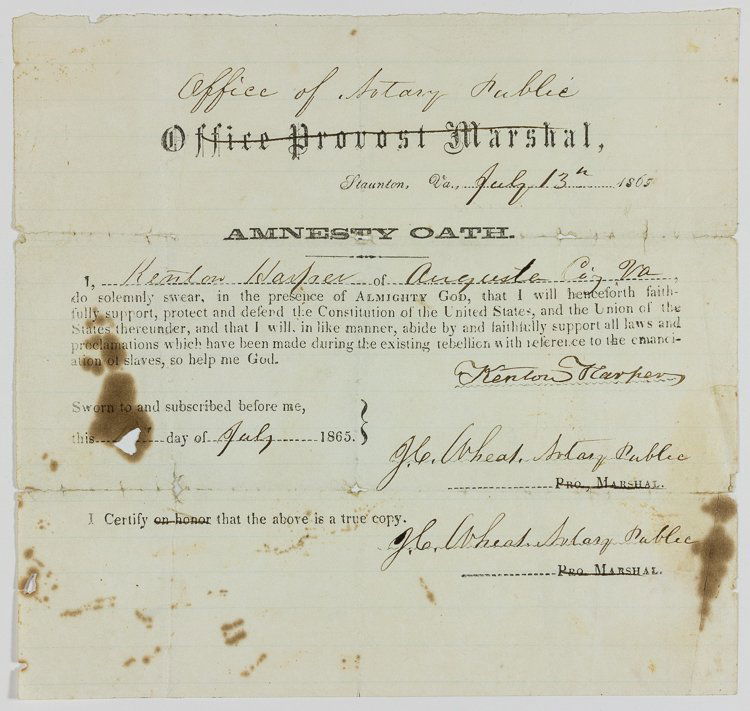 Office of Notary Public
Office Provost Marshal,
Staunton, Va., July 13th 1865
AMNESTY OATH.
I, Kenton Harper of Augusta Co, Va,
do solemnly swear, in the presence of ALMIGHTY GOD, that I will henceforth faith-
fully support, protect and defend the Constitution of the United States, and the Union of the
States thereunder, and that I will, in like manner, abide by and faithfully support all laws and
proclamations which have been made during the existing rebellion with reference to the emanci-
ation of slaves, so help me God.
Kenton Harper
Sworn to and subscribed before me,
this day of July 1865.
J.C. Wheat. Notary Public
PRO, MARSHAL.
I Certify on honor that the above is a true copy.
J.C. Wheat. Notary Public
PRO MARSHAL.